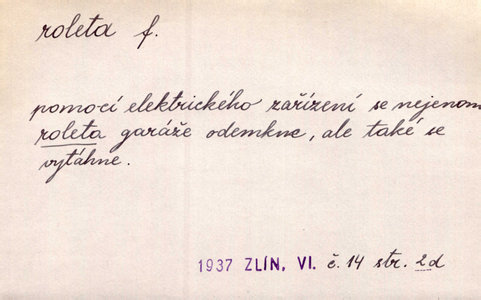 roleta f.
pomocí elektrického zařízení se nejenom
roleta garáže odemkne, ale také se
vytáhne.
1937 ZLÍN, VI. č. 14 str. 2d